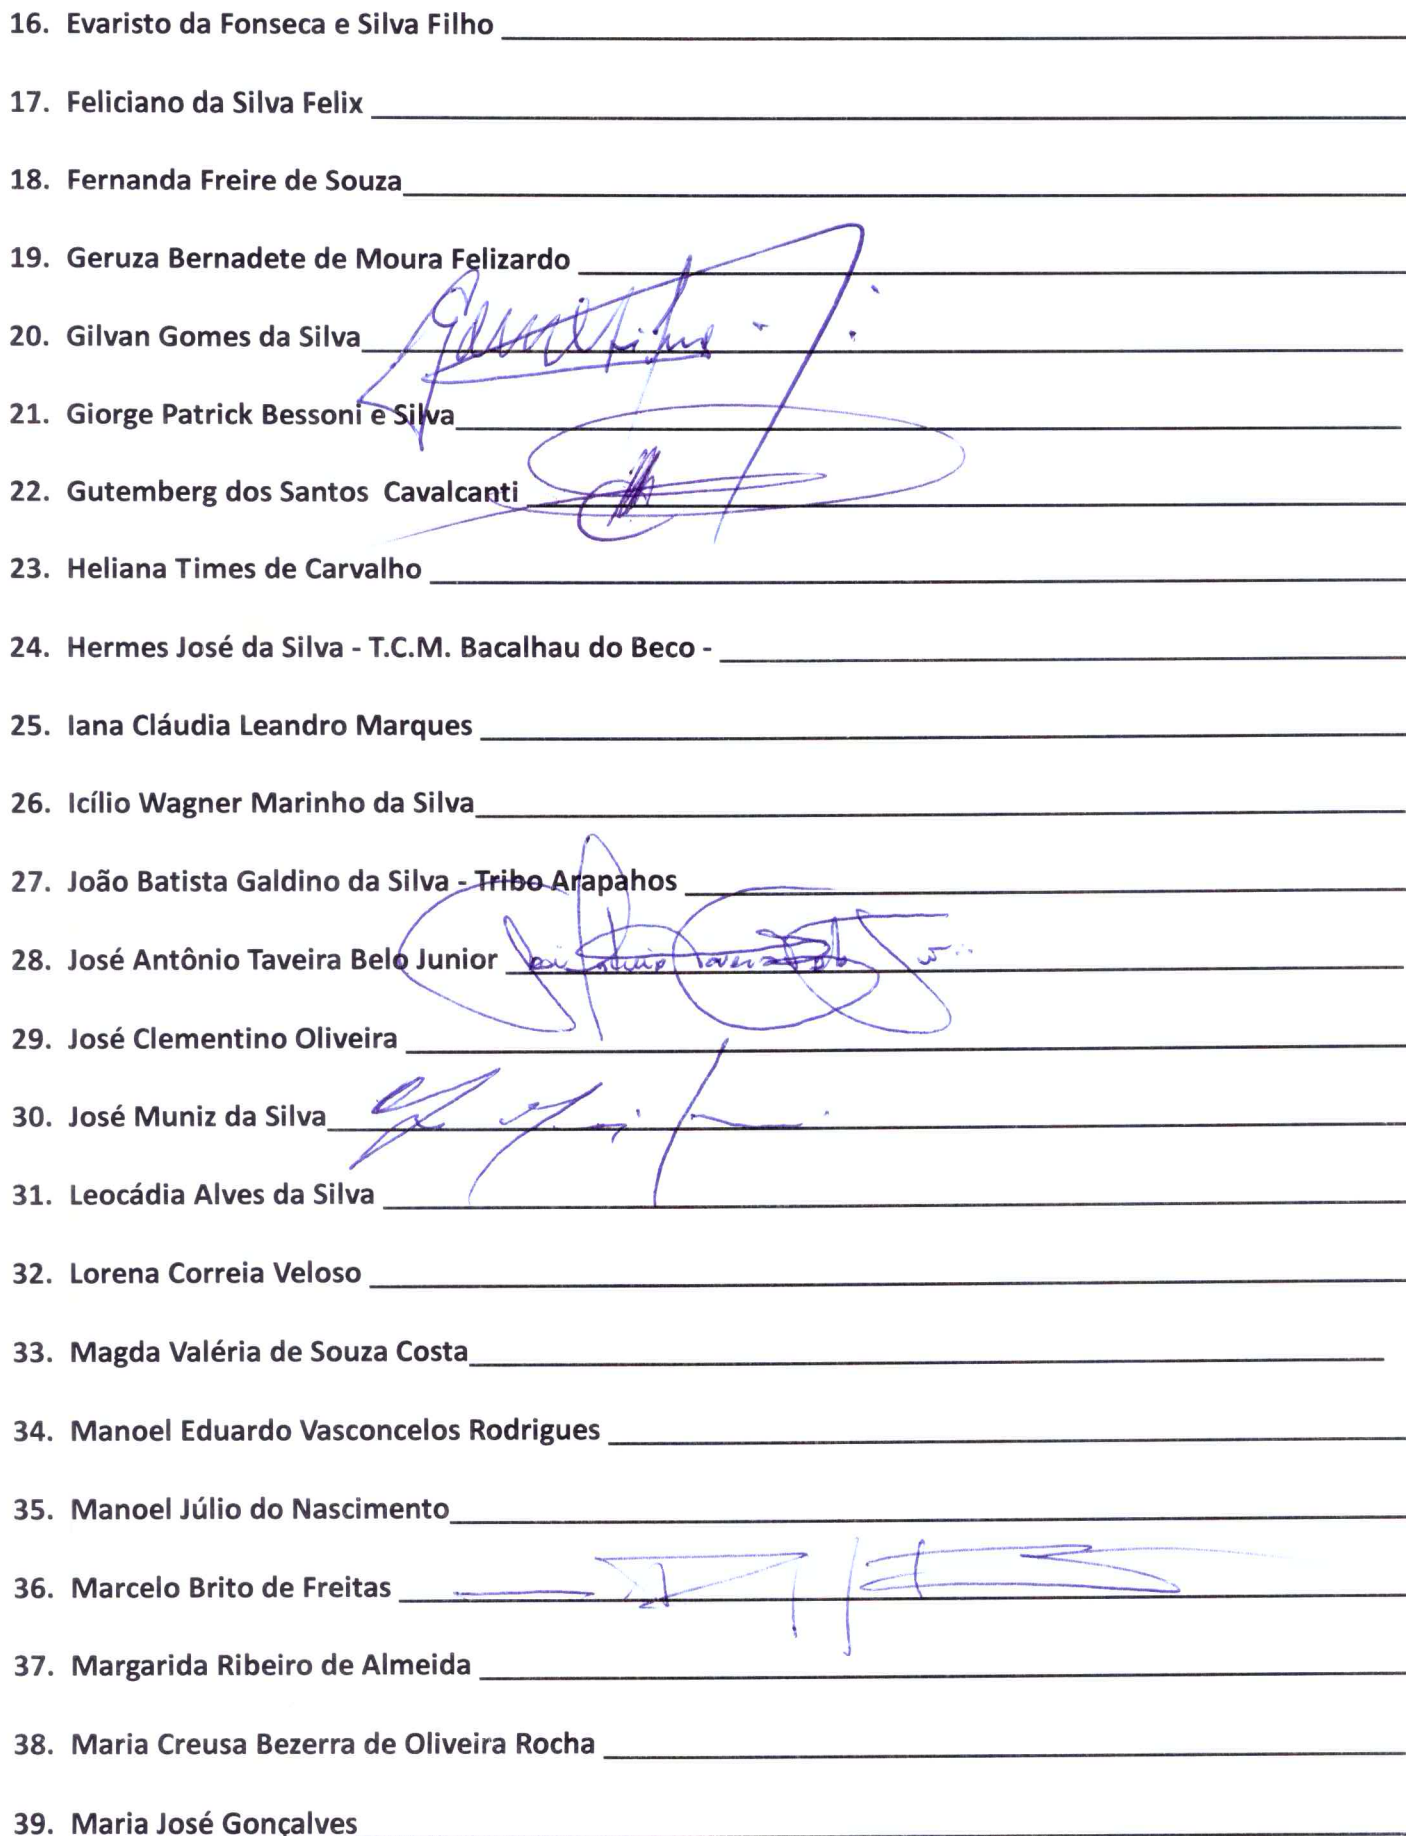 16. Evaristo da Fonseca e Silva Filho
17. Feliciano da Silva Felix
18. Fernanda Freire de Souza
19. Geruza Bernadete de Moura Felizardo
20. Gilvan Gomes da Silva
21. Giorge Patrick Bessoni e Silva
22. Gutemberg dos Santos Cavalcanti
23. Heliana Times de Carvalho
24. Hermes José da Silva - T.C.M. Bacalhau do Beco -
25. Iana Cláudia Leandro Marques
26. Icílio Wagner Marinho da Silva
27. João Batista Galdino da Silva - Tribo Arapahos
28. José Antônio Taveira Belo Junior
29. José Clementino Oliveira
30. José Muniz da Silva
31. Leocádia Alves da Silva
32. Lorena Correia Veloso
33. Magda Valéria de Souza Costa
34. Manoel Eduardo Vasconcelos Rodrigues
35. Manoel Júlio do Nascimento
36. Marcelo Brito de Freitas
37. Margarida Ribeiro de Almeida
38. Maria Creusa Bezerra de Oliveira Rocha
39. Maria José Gonçalves